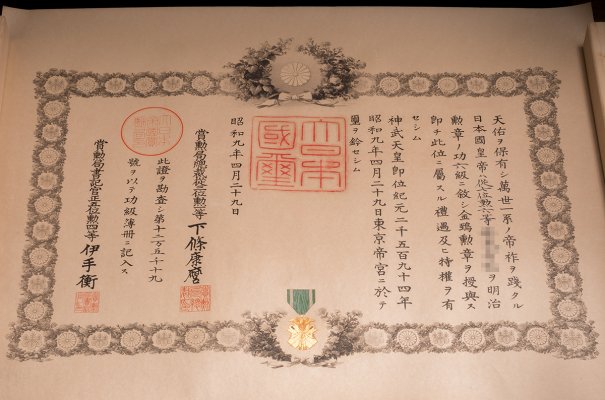 天佑ヲ保有シ萬世一系ノ帝祚ヲ踐タル
日本國皇帝ハ從七位勲六等 ヲ明治
勲章ノ功 級ニ敍シ金鵄勲章ヲ授與ス
即チ此位ニ屬スル禮遇及ヒ特權ヲ有
セシム
神武天皇即位紀元二千五百九十四年
昭和九年四月二十九日東京帝宮ニ於テ
璽ヲ鈐セシム
大日本
國璽
昭和九年四月二十九日
賞勲局總裁從 位勲二等下條康麿
此證ヲ勘査シ第十二万五千十九
號ヲ以テ功級簿冊ニ記入ス
賞勲局書記官正五位勲四等伊手衡